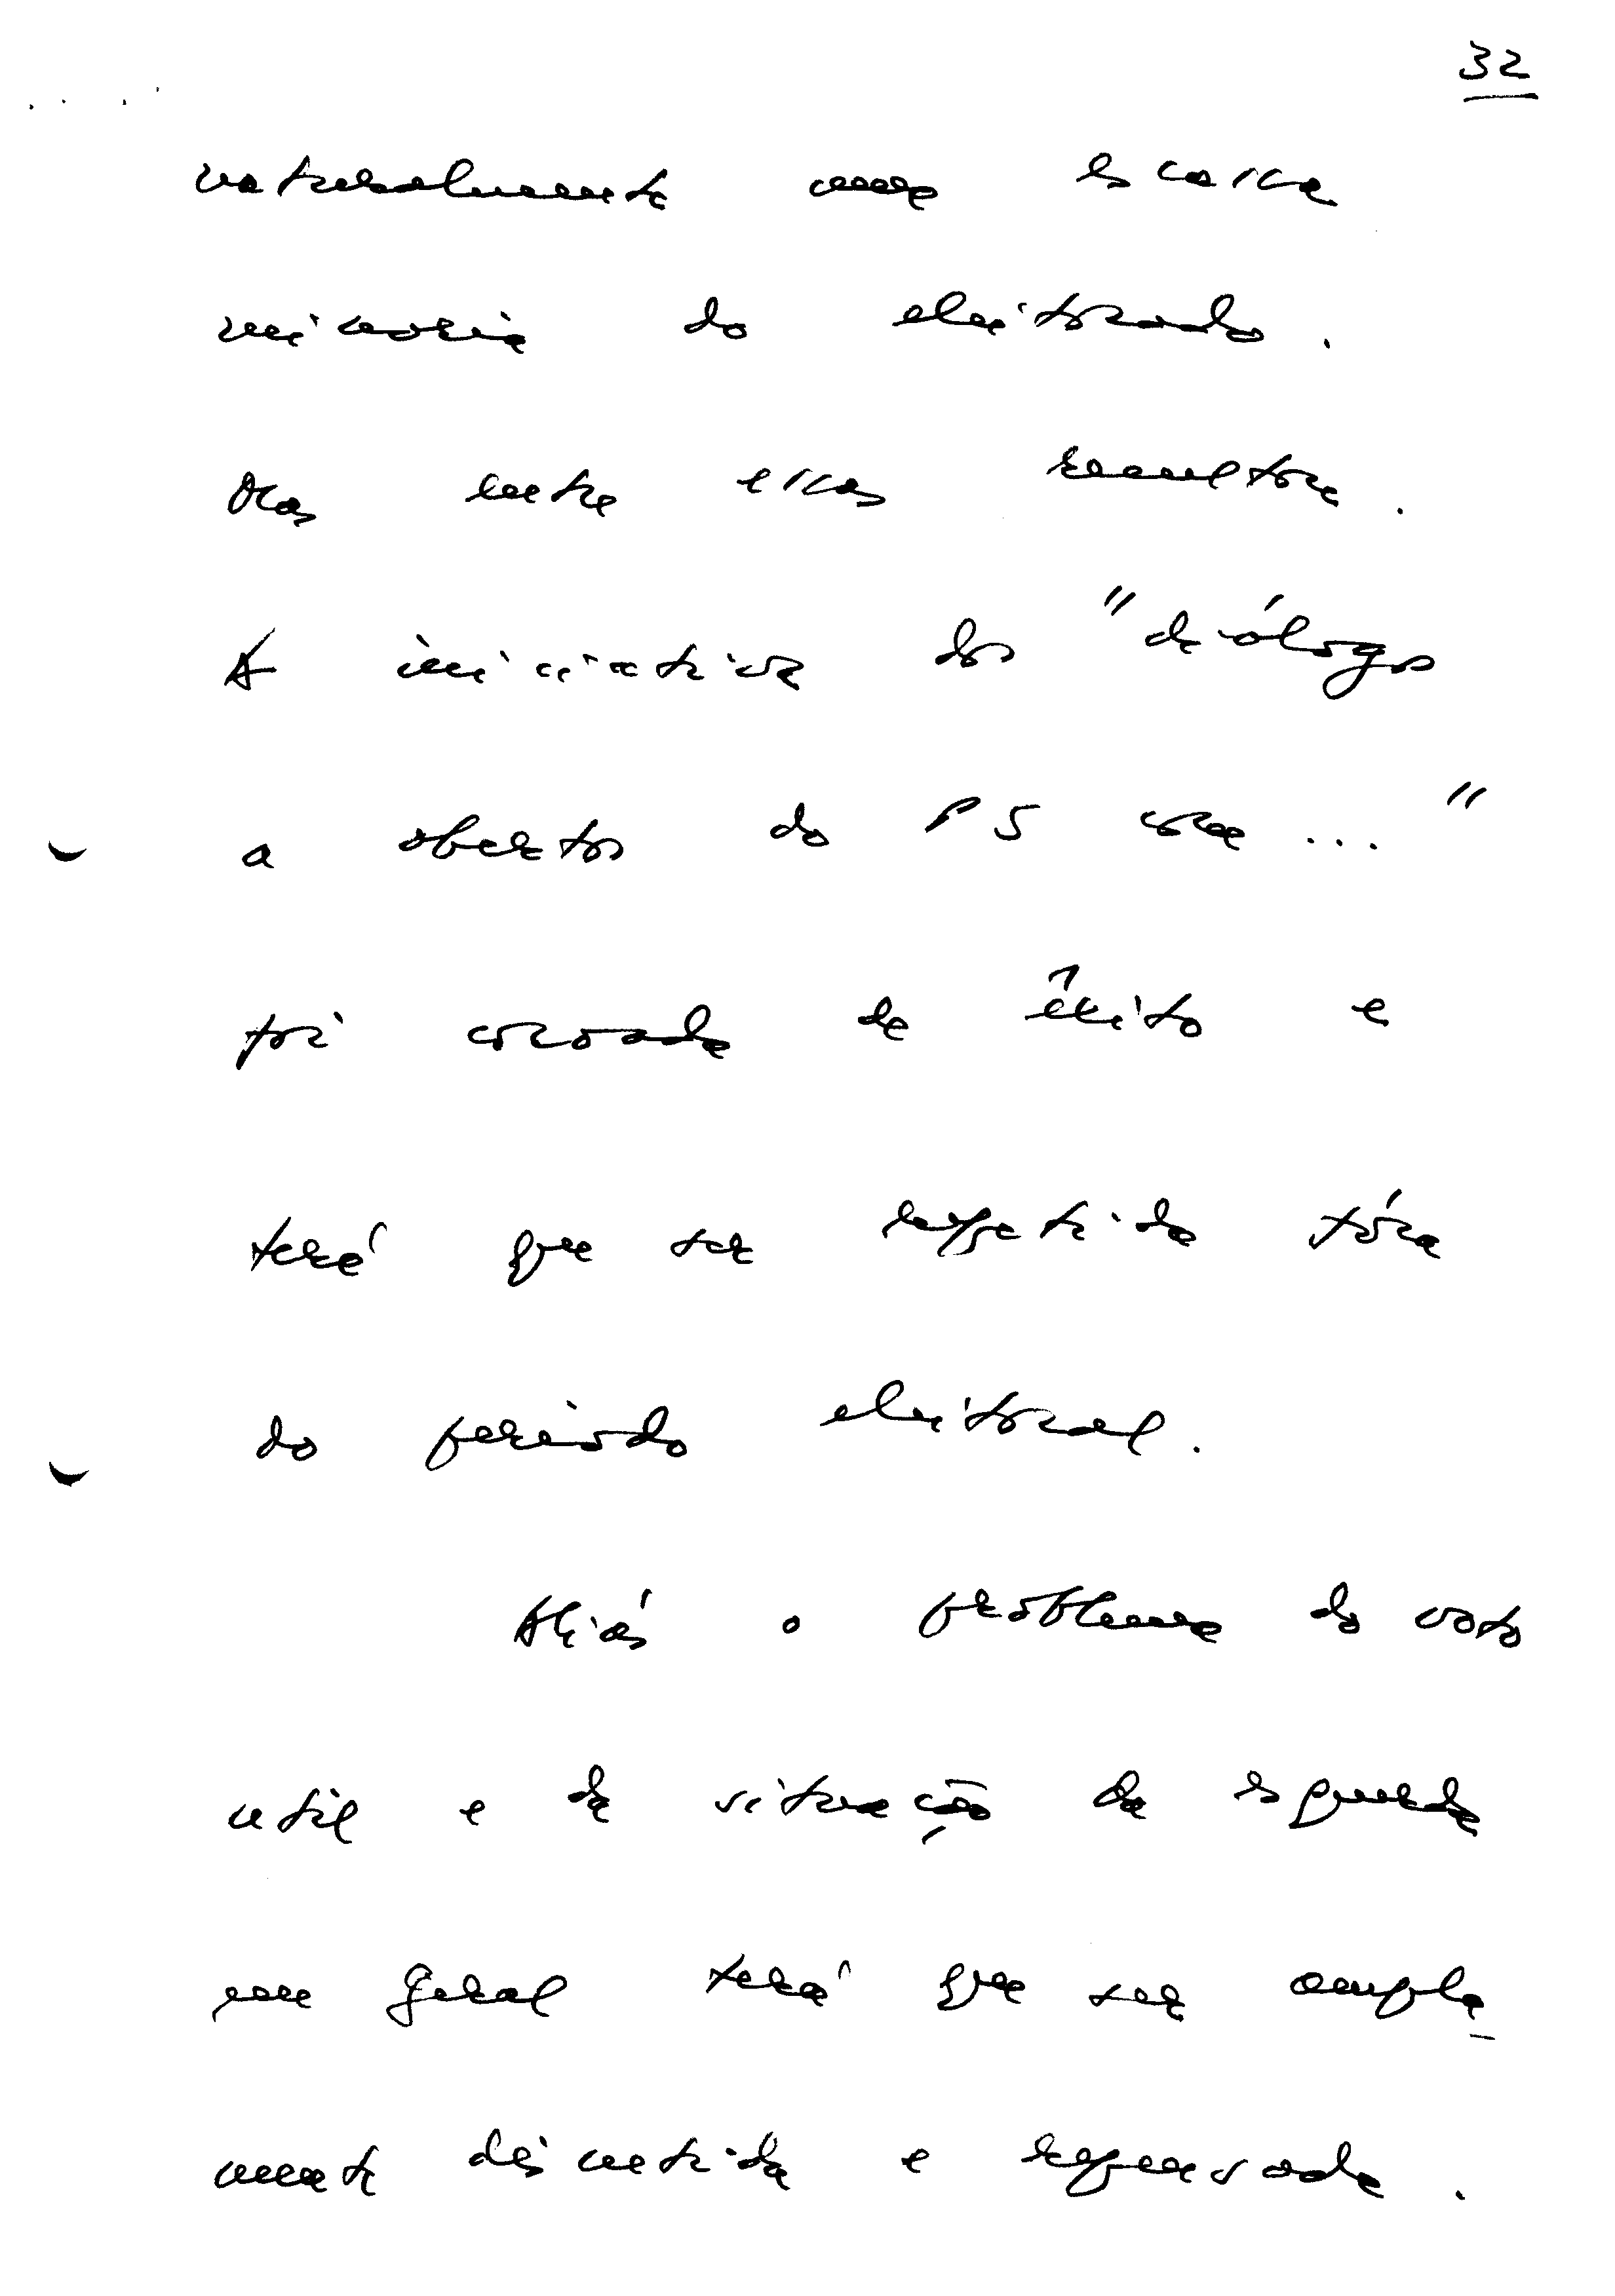 32
naturalmente uma escassa
minoria do eleitorado.
Mas entre essas
A iniciativa dos "diálogos
abertos do PS com ..."
foi coroada de êxito e
terá que ser repetida fóra
do periodo eleitoral.
Aliás o problema do voto
util e da situação da esquerda
em geral terá que ser ampla
mente discutida e repensada.